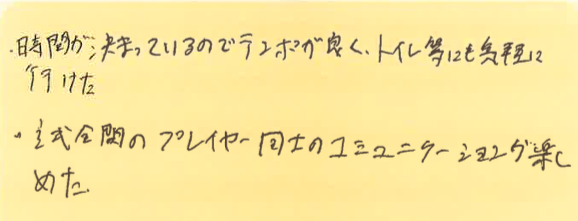 ・時間が決まっているのでテンポが良く、トイレ等にも気軽に
行けた
・試合間のプレイヤー同士のコミュニケーションが楽し
めた